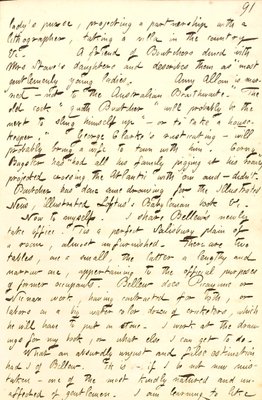 91
lady's purse, projecting a partnership with a
lithographer, taking a villa in the country
&c. A friend of Butchers dined with
Mrs Straw's daughters and describes them as "most
gentlemanly young ladies. Amy Allom is mar-
ried — not to the Australian Brautiment." The
old cock "gutty Butcher" will probably be the
next to sling himself up — or to "take a house-
keeper." George Clarke's rusticating — will
probably bring a wife to town with him. Corny
Bagster has had all his family jigging it his house,
projected crossing the Atlantic with 'em and — didn't.
Butcher has done some drawing for the Illustrated
News, illustrated Loftus's Babylonian book &c.
Now to myself. I share Bellew's newly
taken office. 'Tis a perfect Salisbury plain of
a room, almost unfurnished. There are two
tables, one a small, the latter a lengthy and
narrow one, appertaining to the official purposes
of former occupants. Bellew does Picayune or
Nicnax work, having contracted for both, or
labors on a big water color dozen of
which
he will have to put on stone. I work at the draw-
ings for my book, or what else I can get to do.
What an absurdly unjust and false estimation
had I of Bellew. This is — if I be not very mis-
taken — one of the most kindly natured and un-
affected of gentlemen. I am learning to like